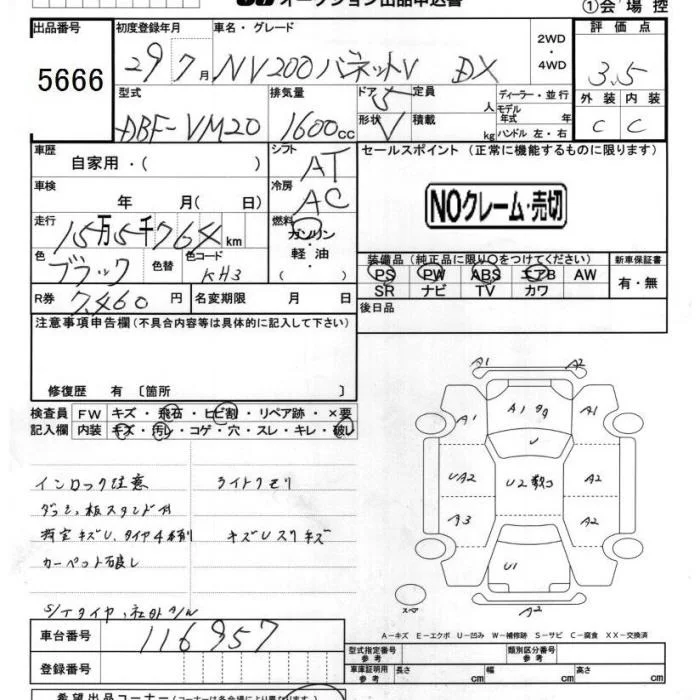 オークション出品申込書
①会場控
出品番号
5666
初度登録年月
29年7月
車名・グレード
NV200バネットV DX
2WD
・
4WD
評価点
3.5
型式
DBF-VM20
排気量
1600cc
ドア
5
定員
人
形状
V
積載
kg
ディーラー・並行
モデル
年式 年
ハンドル 左・右
外装 内装
C C
車歴
自家用・( )
シフト
AT
セールスポイント (正常に機能するものに限ります)
NOクレーム・売切
車検
年 月( 日)
冷房
AC
走行
15万5千764km
燃料
ガソリン
・
軽油・
( )
色
ブラック
色替
色コード
KH3
装備品(純正品に限り○をつけてください)
PS PW ABS エアB AW
SR ナビ TV カワ
新車保証書
有・無
R券 7,460円
名変期限 月 日
後日品
注意事項申告欄(不具合内容等は具体的に記入して下さい)
修復歴 有〔箇所 〕
検査員 FW キズ・飛石・ヒビ割・リペア跡・×要
記入欄 内装 キズ・汚レ・コゲ・穴・スレ・キレ・破レ
インロック注意
ライトクモリ
ダッシュ板スタンド付
キズUスリキズ
カーペット破レ
S/Tタイヤ、社外A/W
A1 A2
A1 A1 99 A1
U
UA2 U2 A2
A3 A2
U1
スペア
A2
A-キズ E-エクボ U-凹み W-補修跡 S-サビ C-腐食 XX-交換済
車台番号 116957
登録番号
型式指定番号
参考
類別区分番号
参考
車庫証明用
参考
長さ cm 幅 cm 高さ cm
希望出品コーナー(コーナーは各会場により異なります)